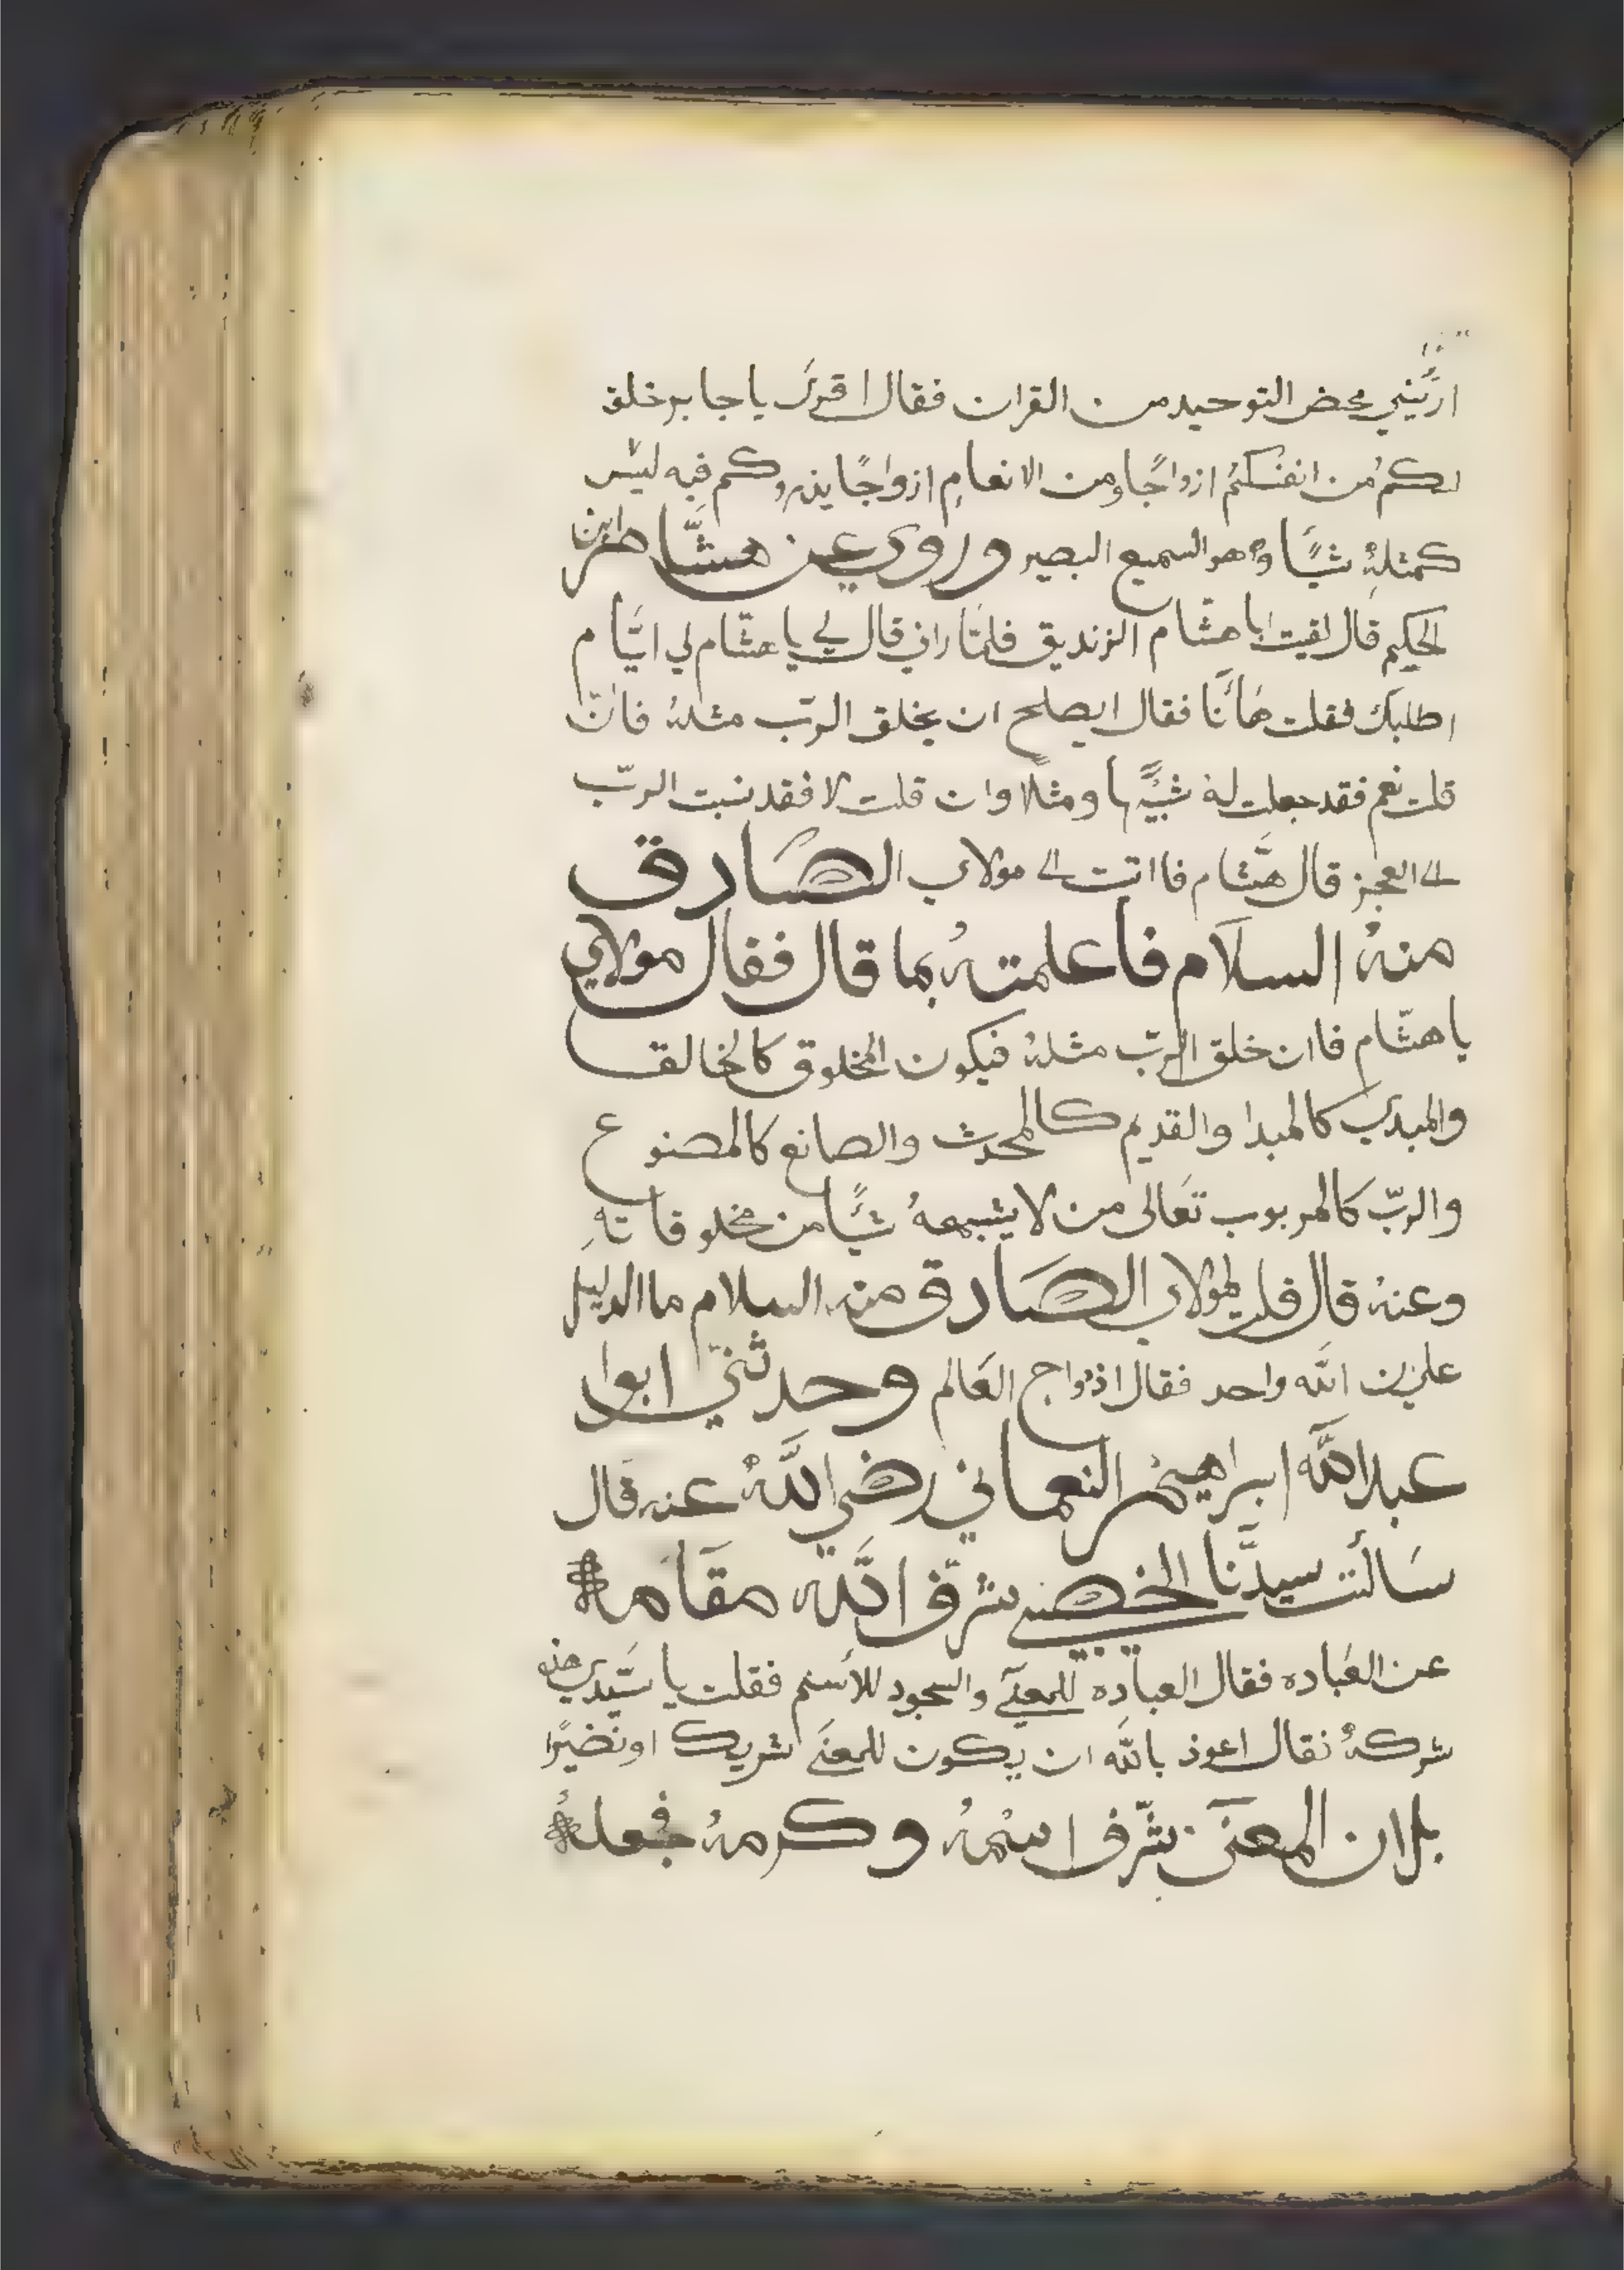 ارّيني محض التوحيد من القران فقال اقرك يا جابر خلق
لكم من انفسكم ازواجًا ومن الانعام ازواجًا يذروكم فيه ليس
كمثلهُ شيًا وهو السميع البصير وروي عن هشّام ابن
الحكيم قال لقيت ابا هشام الزنديق فلمّا راني قال لي يا هشّام لي ايّام
اطلبك فقلت هاأنا فقال ايصلح ان يخلق الربّ مثلهُ فانّ
قلت نعم فقد جعلت له شبيًها ومثلًا وان قلت لا فقد نسبت الربّ
الى العجز قال هشّام فااتيت الى مولاي الصَادق
منهُ السلام فأعلمتهُ بما قال فقال مولاي
يا هشّام فاان خلق الربّ مثلهُ فيكون المخلوق كالخالق
والمبدي كالمبدا والقديم كالمحدث والصانع كالمصنوع
والربّ كالمربوب تعَالى من لا يشبههُ شيًا من مخلوقاتهِ
وعنهُ قال قلت لمولاي الصَادق منه السلام ما الدليل
على ان الله واحد فقال ازدواج العَالم وحدثني ابوا
عبدالله ابراهيم النعماني رضي اللهُ عنه قال
سَالت سيدنا الخصيبي شرّف الله مقامهُ
عن العبَاده فقال العبادَه للمعنَى والسجود للأسم فقلت يا سَيّدي هذه
شركهُ فقال اعوذ بالله ان يكون للمعنَى شريك او نضيرًا
بل ان المعنَى شرّف اسمهُ وكرمهُ فجعلهُ